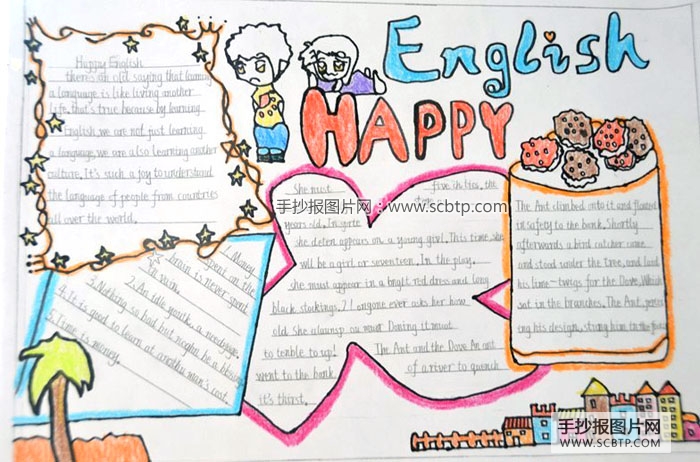 English
HAPPY
Happy English
there's an old saying that learning
a language is like living another
life. that's true because by learning
English, we are not just learning
a language, we are also learning another
culture. It's such a joy to understand
the language of people from countries
all over the world.
1. Money spent on the
brain is never spent
in vain.
2. An idle youth, a needy age.
3. Nothing so bad but might be a blessing
4. It is good to learn at another man's cost.
5. Time is money.
she must five sixties. the
手抄报图片网：www.scbtp.com
years old. In
she deten appears as a young girl. This time she
will be a girl or seventeen. In the play.
she must appear in a bright red dress and long
black stockings. If anyone ever asks her how
old she
to tenble to up! The Ant and the Dove An ant
went to the bank of a river to quench
it's thirst.
The Ant climbed onto it and floated
in safety to the bank. Shortly
afterwards a bird catcher came
and stood under the tree, and laid
his lime-twigs for the Dove, Which
sat in the branches. The Ant,
ing his design, stung him in the foot.
手抄报图片网
WWW.SCBTP.COM